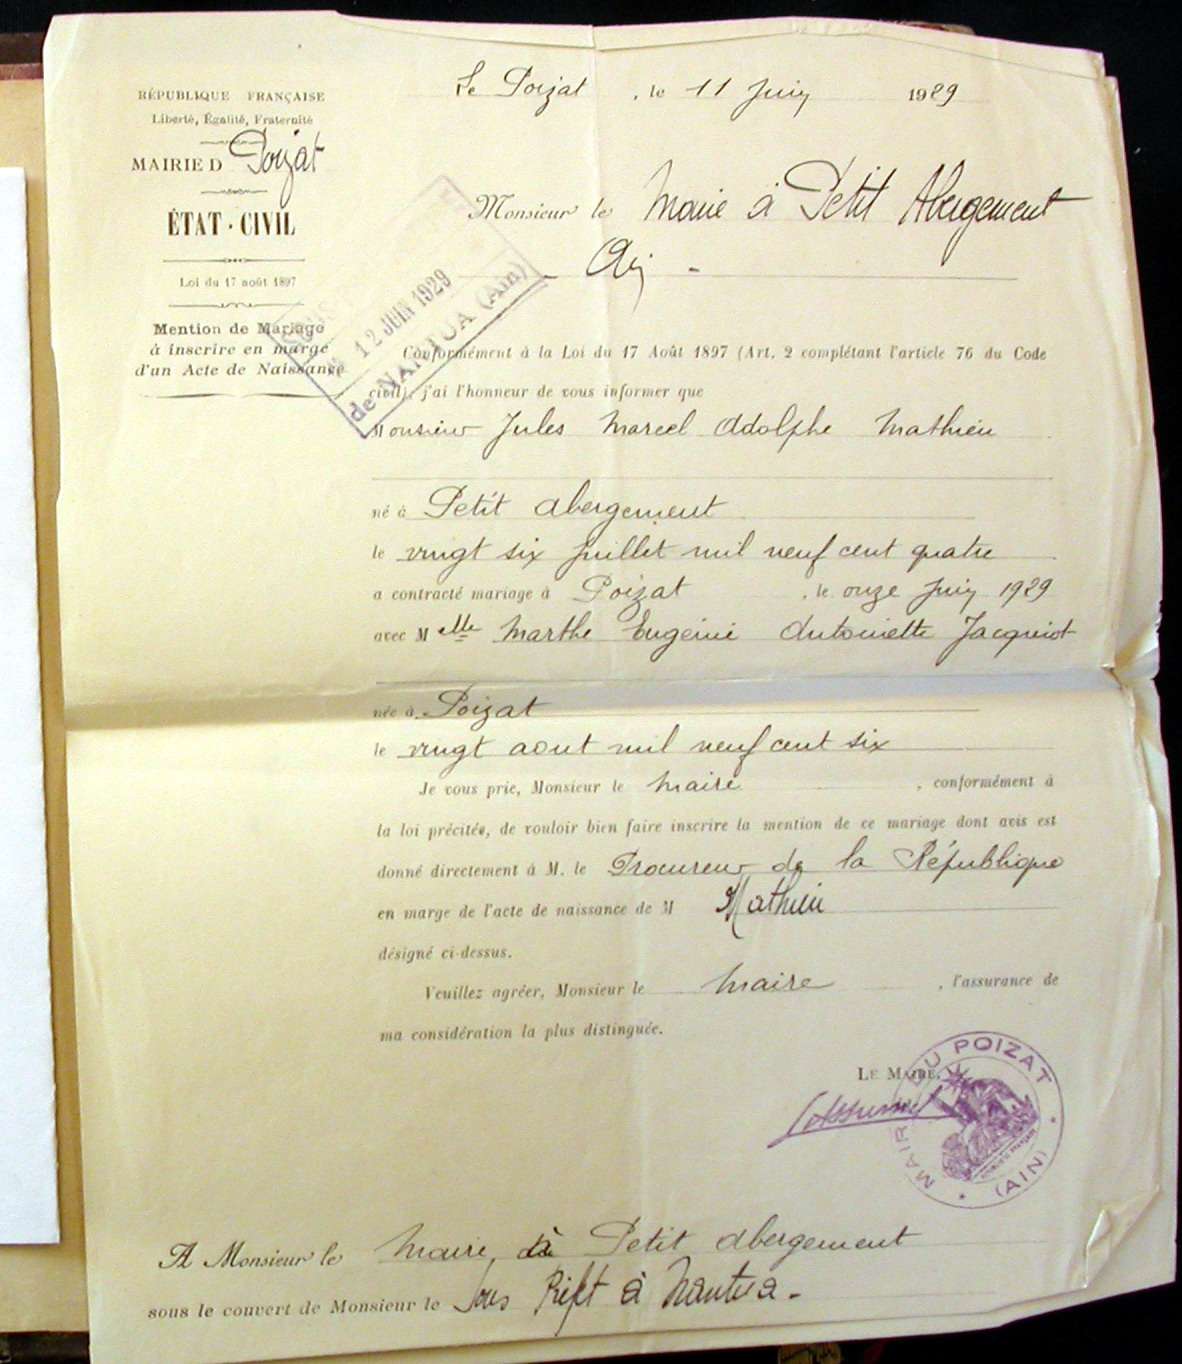 RÉPUBLIQUE FRANÇAISE
Liberté, Égalité, Fraternité
MAIRIE D Poizat
ÉTAT-CIVIL
Loi du 17 août 1897
Mention de Mariage
à inscrire en marge
d'un Acte de Naissance
Le Poizat, le 11 Juin 1929
Monsieur le Maire à Petit Abergement
Ain -
12 JUIN 1929
de NANTUA (Ain)
Conformément à la Loi du 17 Août 1897 (Art. 2 complétant l'article 76 du Code
civil), j'ai l'honneur de vous informer que
Monsieur Jules Marcel Adolphe Mathieu
né à Petit abergement
le vingt six Juillet mil neuf cent quatre
a contracté mariage à Poizat, le onze Juin 1929
avec M elle Marthe Eugénie Antoinette Jacquiot
née à Poizat
le vingt aout mil neuf cent six
Je vous prie, Monsieur le maire, conformément à
la loi précitée, de vouloir bien faire inscrire la mention de ce mariage dont avis est
donné directement à M. le Procureur de la République
en marge de l'acte de naissance de M Mathieu
désigné ci-dessus.
Veuillez agréer, Monsieur le maire, l'assurance de
ma considération la plus distinguée.
LE MAIRE,
MAIRIE DU POIZAT
(AIN)
A Monsieur le maire, à Petit abergement
sous le couvert de Monsieur le Sous Préft à Nantua -